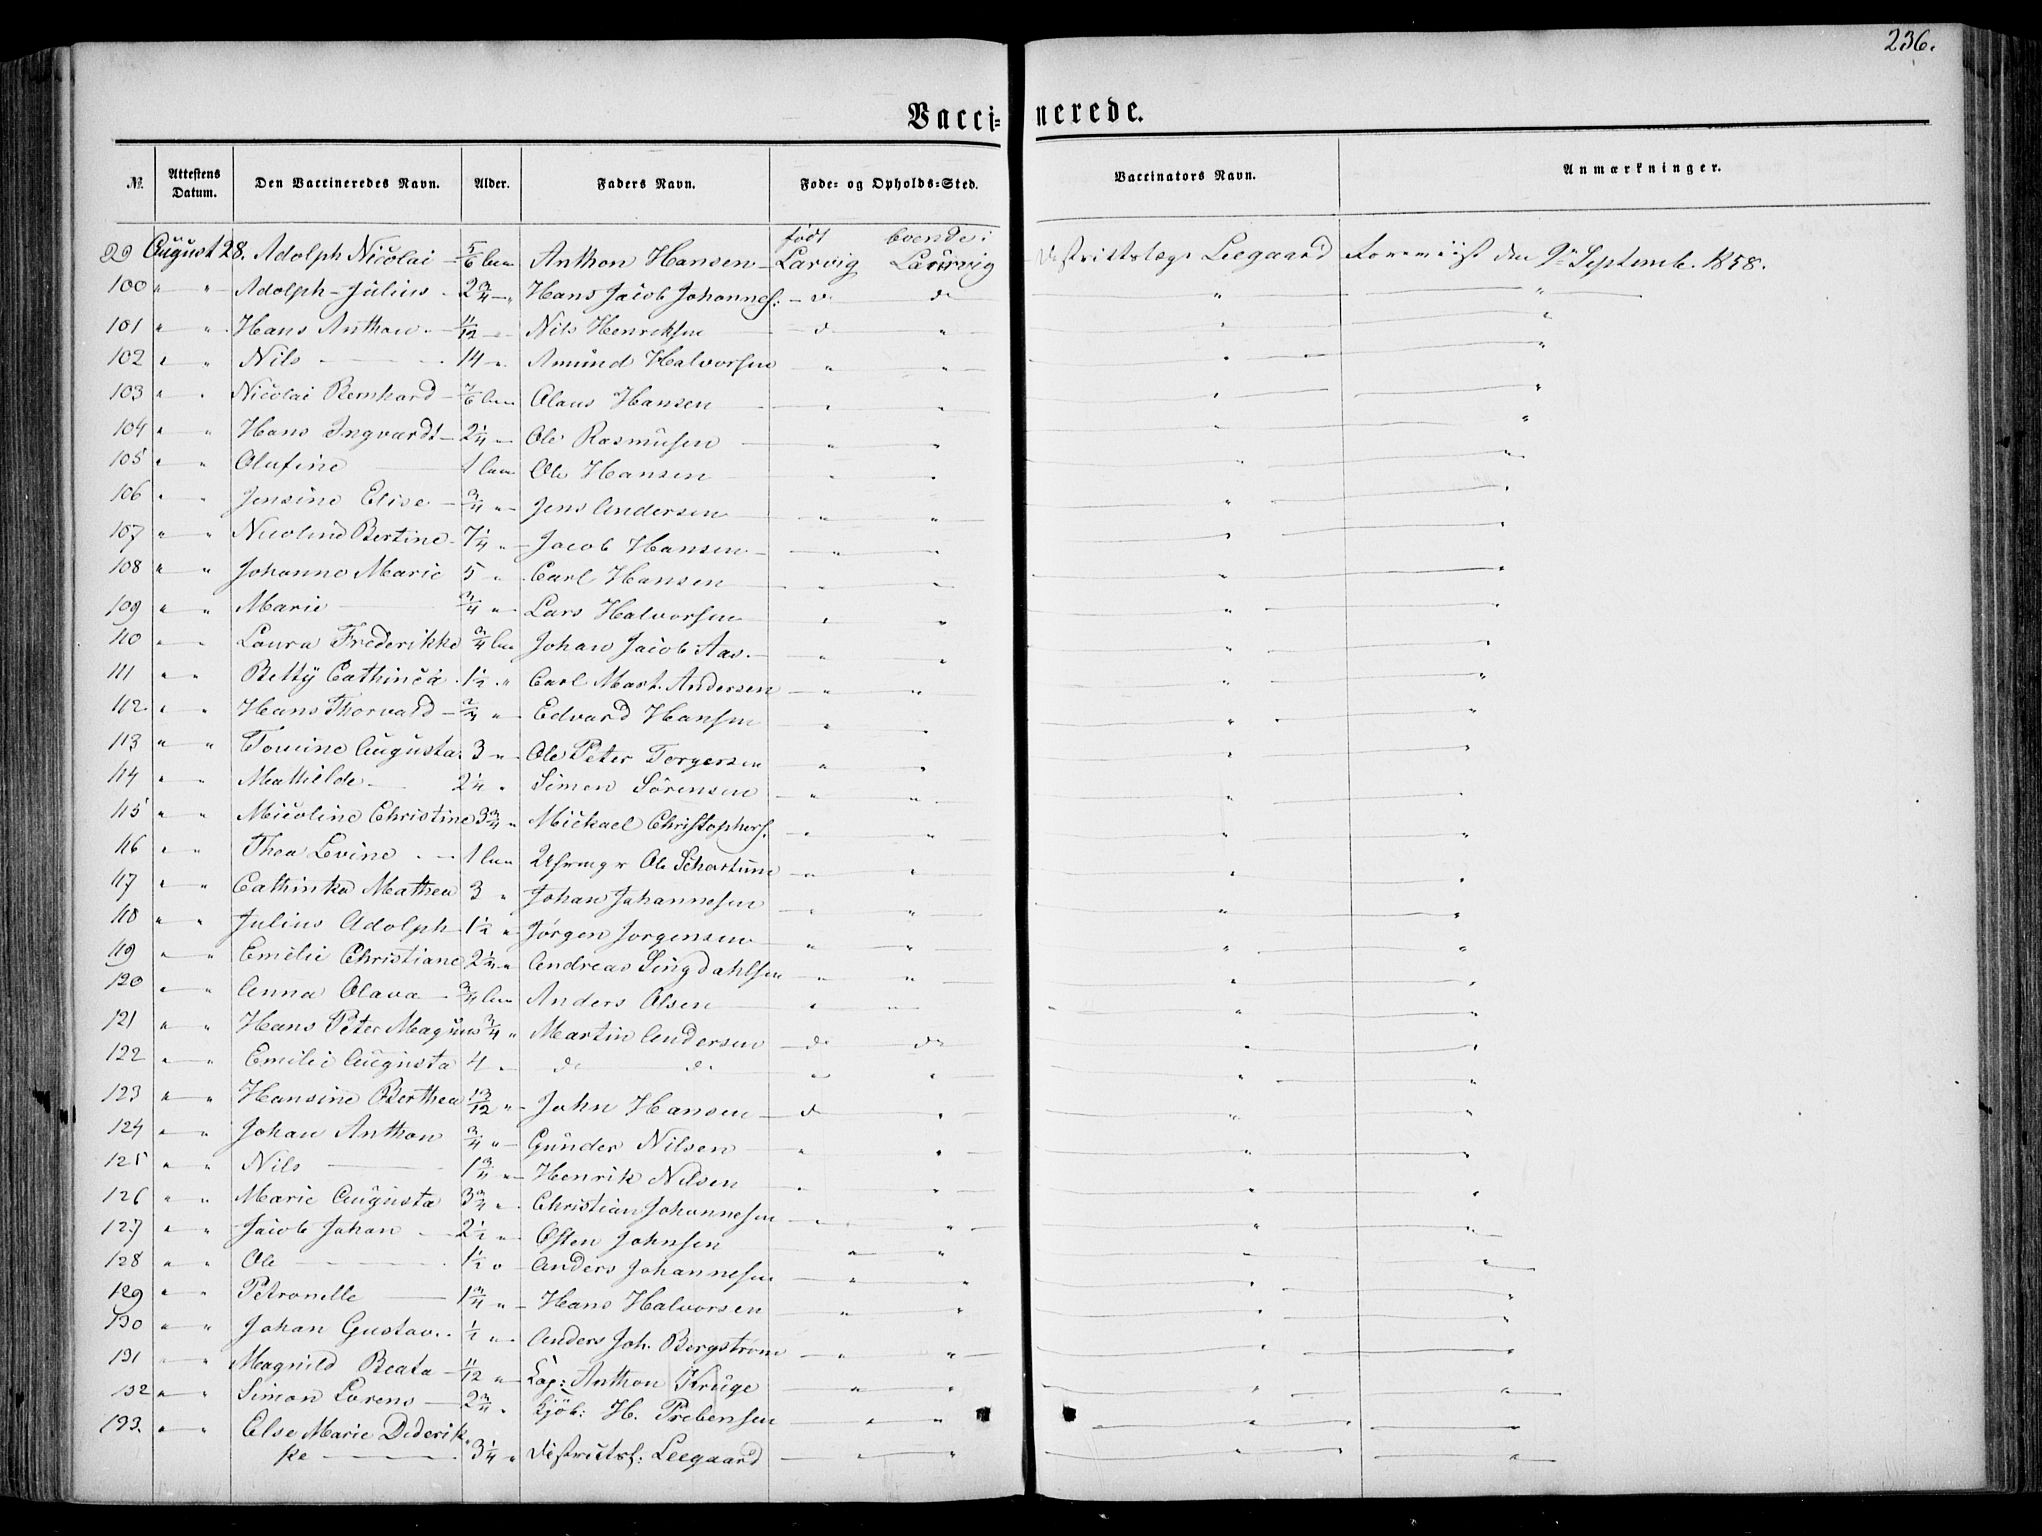 236.
Vaccinerede.
№ Attestens Datum. Den Vaccineredes Navn. Alder. Faders Navn. Føde- og Opholds-Sted. Vaccinators Navn. Anmærkninger.
født boende i
99 August 28. Adolph Nicolai 5/6 Anthon Hansen Larvig Laurvig Leegaard den 9 Septemb. 1858.
100 " " Adolph Julius 2 3/4 " Hans Jacob Johannes: do do " "
101 " " Hans Anthon 11/12 " Nils Henriksen d " " "
102 " " Nils 14 " Amund Halvorsen " " " "
103 " " Nicolai Bernhard 7/6 Claus Hansen " " " "
104 " " Hans Ingvardt 2 1/4 Ole Rasmusen " " " "
105 " " Olufine 1 Ole Hansen " " " "
106 " " Jensine Elise 3/4 " Jens Andersen " " " "
107 " " Nicoline Bertine 7 1/4 " Jacob Hansen " " " "
108 " " Johanne Marie 5 " Carl Hansen " " " "
109 " " Marie 3/4 " Lars Halvorsen " " " "
110 " " Laura Frederikke 3/4 Johan Jacob Aas. " " " "
111 " " Betty Cathinca 1 1/2 " Carl Mart. Andersen " " " "
112 " " Hans Thorvald 3/4 " Edvard Hansen " " " "
113 " " Tomine Augusta 3 " Ole Peter Torgersen " " " "
114 " " Mathilde 2 1/4 " Simon Sörensen " " " "
115 " " Nicoline Christine 3 3/4 " Mickael Christophers. " " " "
116 " " Thea Levine 1 Ole Schartum " " " "
117 " " Cathinka Mathea 3 " Johan Johannesen " " " "
118 " " Julius Adolph 1 1/2 " Jørgen Jorgensen " " " "
119 " " Emilie Christiane 2 1/4 " Andreas Lingdahlsen " " " "
120 " " Anna Olava 3/4 Anders Olsen " " " "
121 " " Hans Peter Magnus 3/4 " Martin Andersen do do " "
122 " " Emilie Augusta 4 " do do " " " "
123 " " Hansine Berthea 13/12 " John Hansen d " " "
124 " " Johan Anthon 3/4 " Gunder Nilsen " " " "
125 " " Nils 1 3/4 " Henrik Nilsen " " " "
126 " " Marie Augusta 3 3/4 " Christian Johannesen " " " "
127 " " Jacob Johan 2 1/2 " Osten Johnsen " " " "
128 " " Ole 1 1/2 " Anders Johannesen " " " "
129 " " Petronelle 1 3/4 " Hans Halvorsen " " " "
130 " " Johan Gustav. 1/2 " Anders Joh. Bergstrøm " " " "
131 " " Magnild Beata 11/12 " Cap: Anthon Kruge " " " "
132 " " Simon Lorens 2 3/4 " Kjöb: H. Prebensen " " " "
133. " " Else Marie Diderik-
ke 3 1/4 " Districtsl: Leegaard " " " "